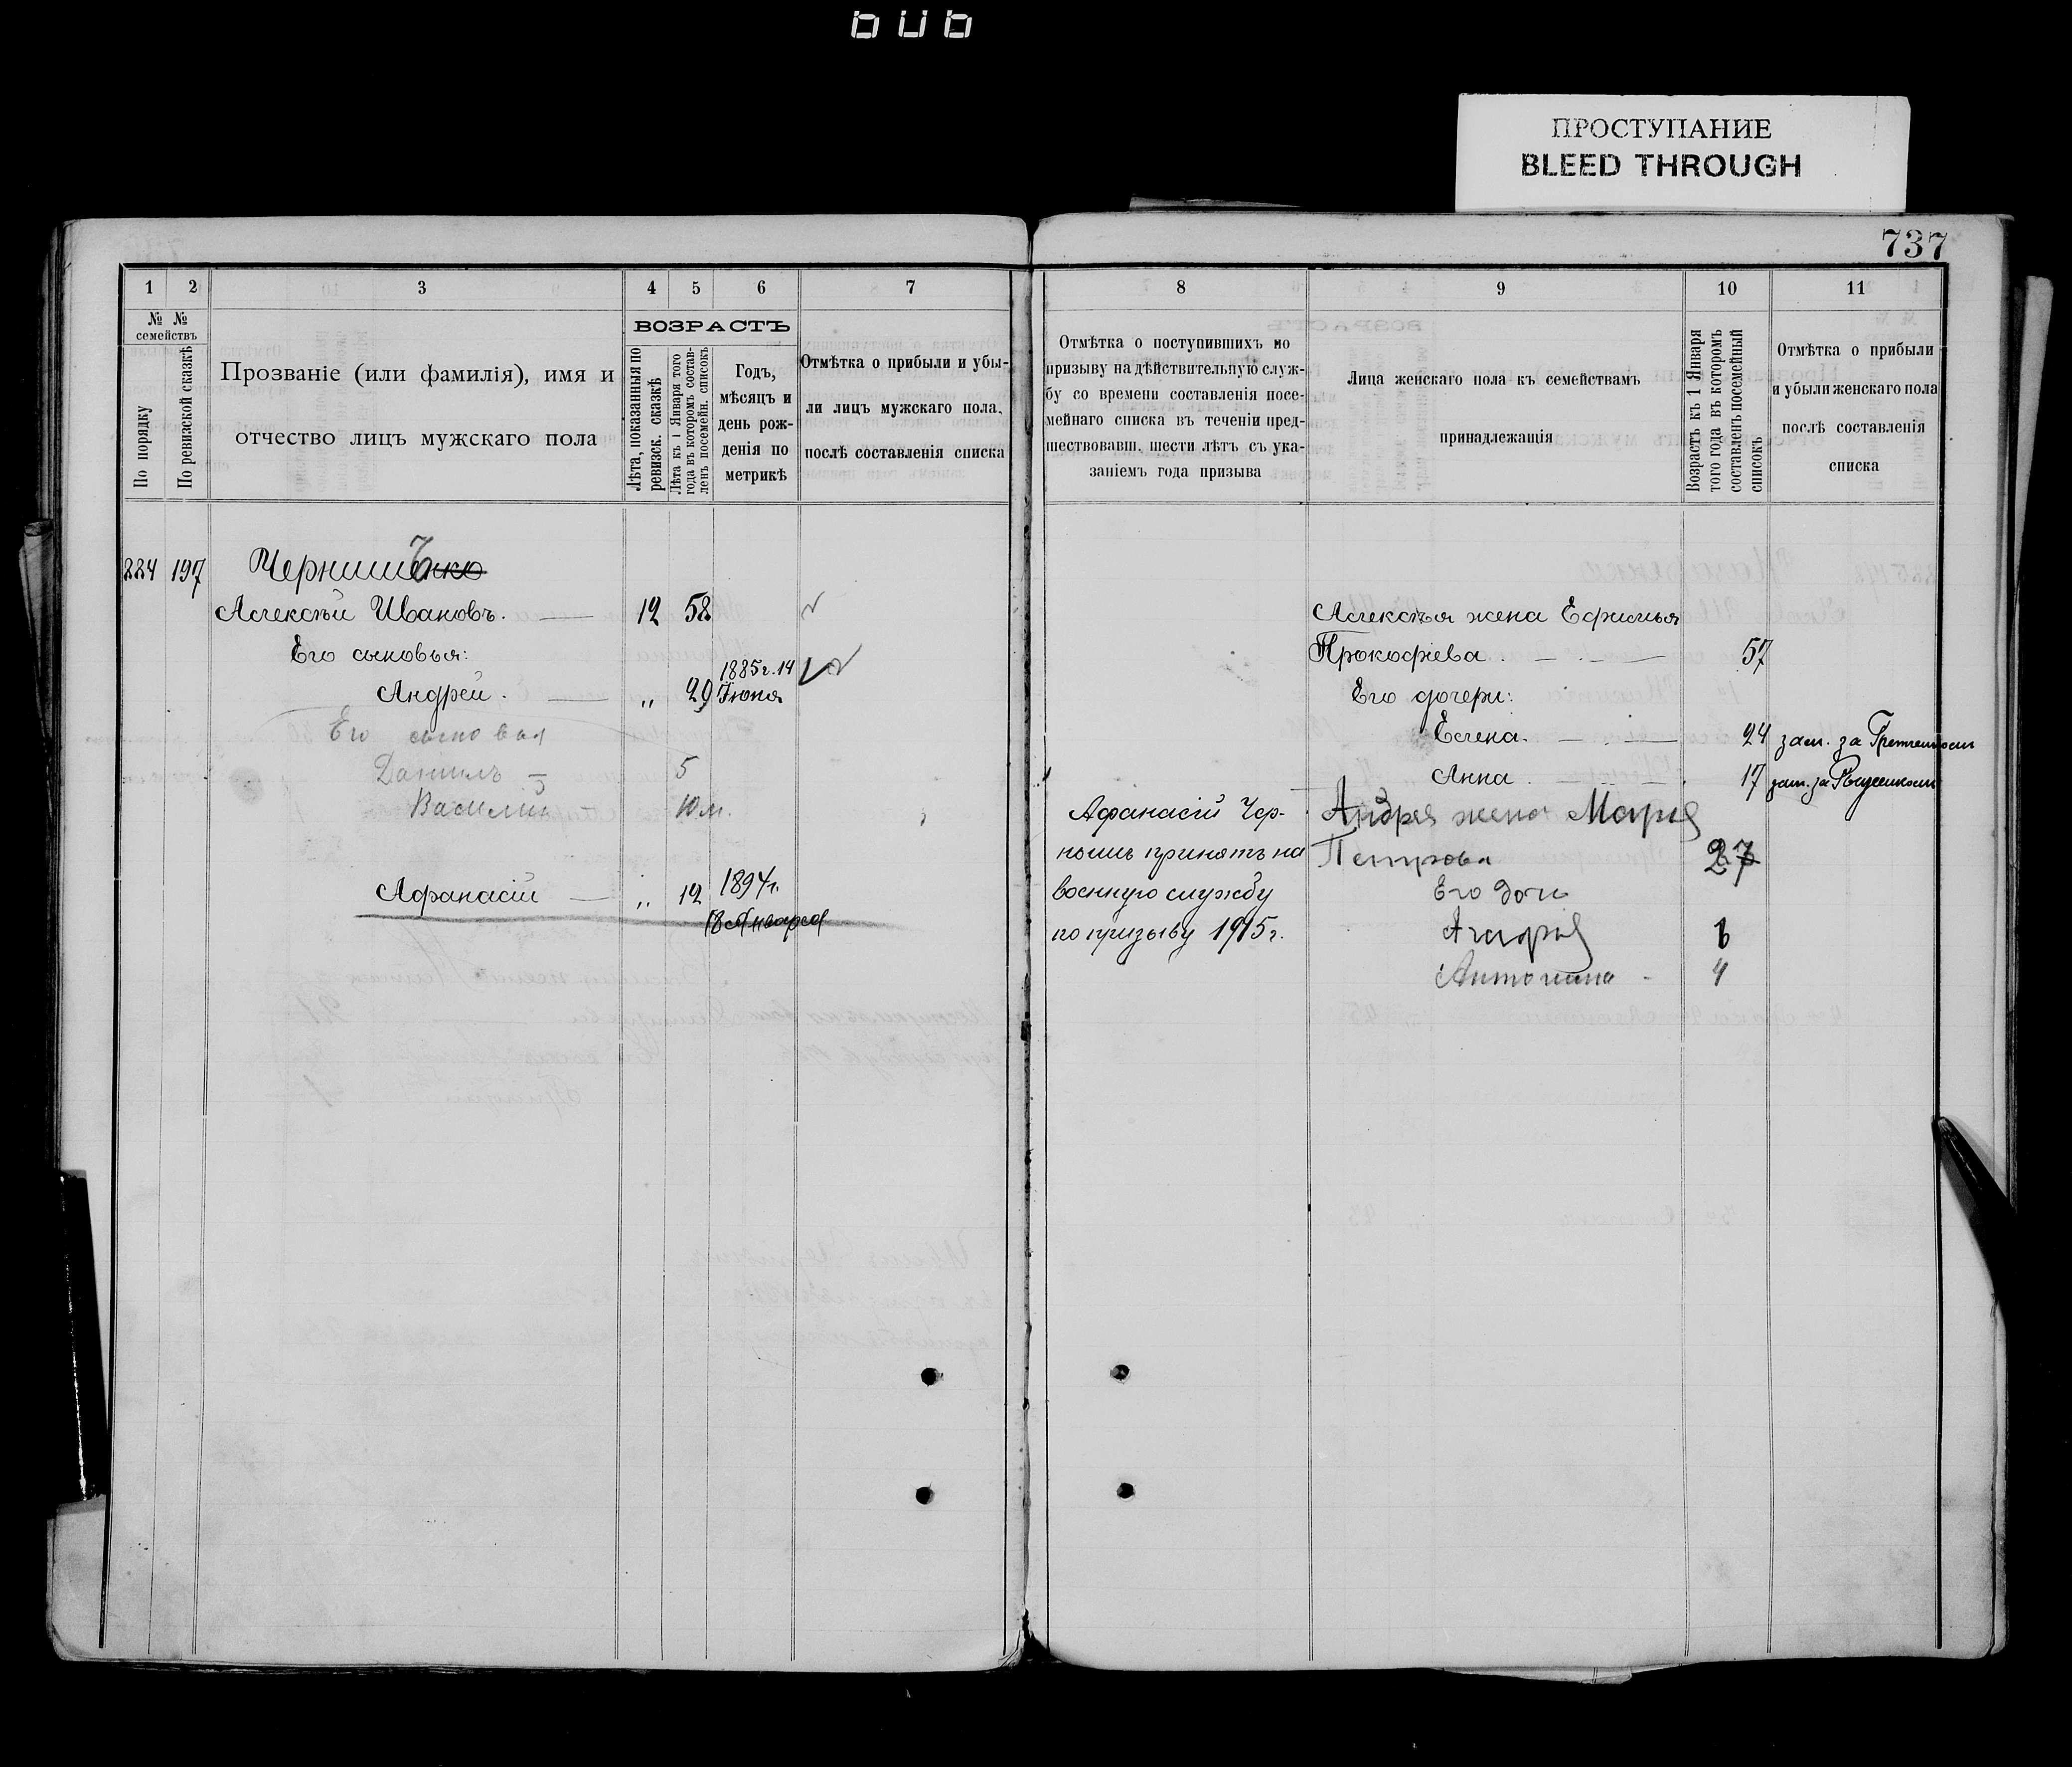 ПРОСТУПАНИЕ
BLEED THROUGH
737
1 2 3 4 5 6 7
№ № семействъ
По порядку
По ревизской сказкѣ
Прозваніе (или фамилія), имя и
отчество лицъ мужскаго пола
ВОЗРАСТЪ
Лѣта, показанныя по
ревизск. сказкѣ
Лѣта къ 1 Января того
года въ которомъ состав-
ленъ посемейн. списокъ
Годъ,
мѣсяцъ и
день рож-
денія по
метрикѣ
Отмѣтка о прибыли и убы-
ли лицъ мужскаго пола,
послѣ составленія списка
8 9 10 11
Отмѣтка о поступившихъ по
призыву на дѣйствительную служ-
бу со времени составленія посе-
мейнаго списка въ теченіи пред-
шествовавш. шести лѣтъ съ ука-
заніемъ года призыва
Лица женскаго пола къ семействамъ
принадлежащія
Возрастъ къ 1 Января
того года въ которомъ
составленъ посемейный
списокъ
Отмѣтка о прибыли
и убыли женскаго пола
послѣ составленія
списка
224 197
Алексѣй Ивановъ. 12 58
Его сыновья:
Андрей. „ 29 1885 г. 14 Іюня
Его сыновья
Данилъ 5
Василій 10 м.
Афанасій „ 12 1894 г.
18 Января
Афанасій Чер-
нышъ принятъ на
военную службу
по призыву 1915 г.
Алексѣя жена Ефимья
Прокофіева. 57
Его дочери:
Елена. 24 зам. за
Анна. 17 зам. за
Андрея жена Марія
Петрова 27
Его дочь
Антонина 4